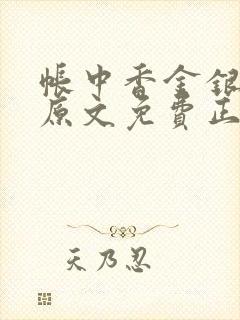 帐中香金银
原文免费正
天乃忍